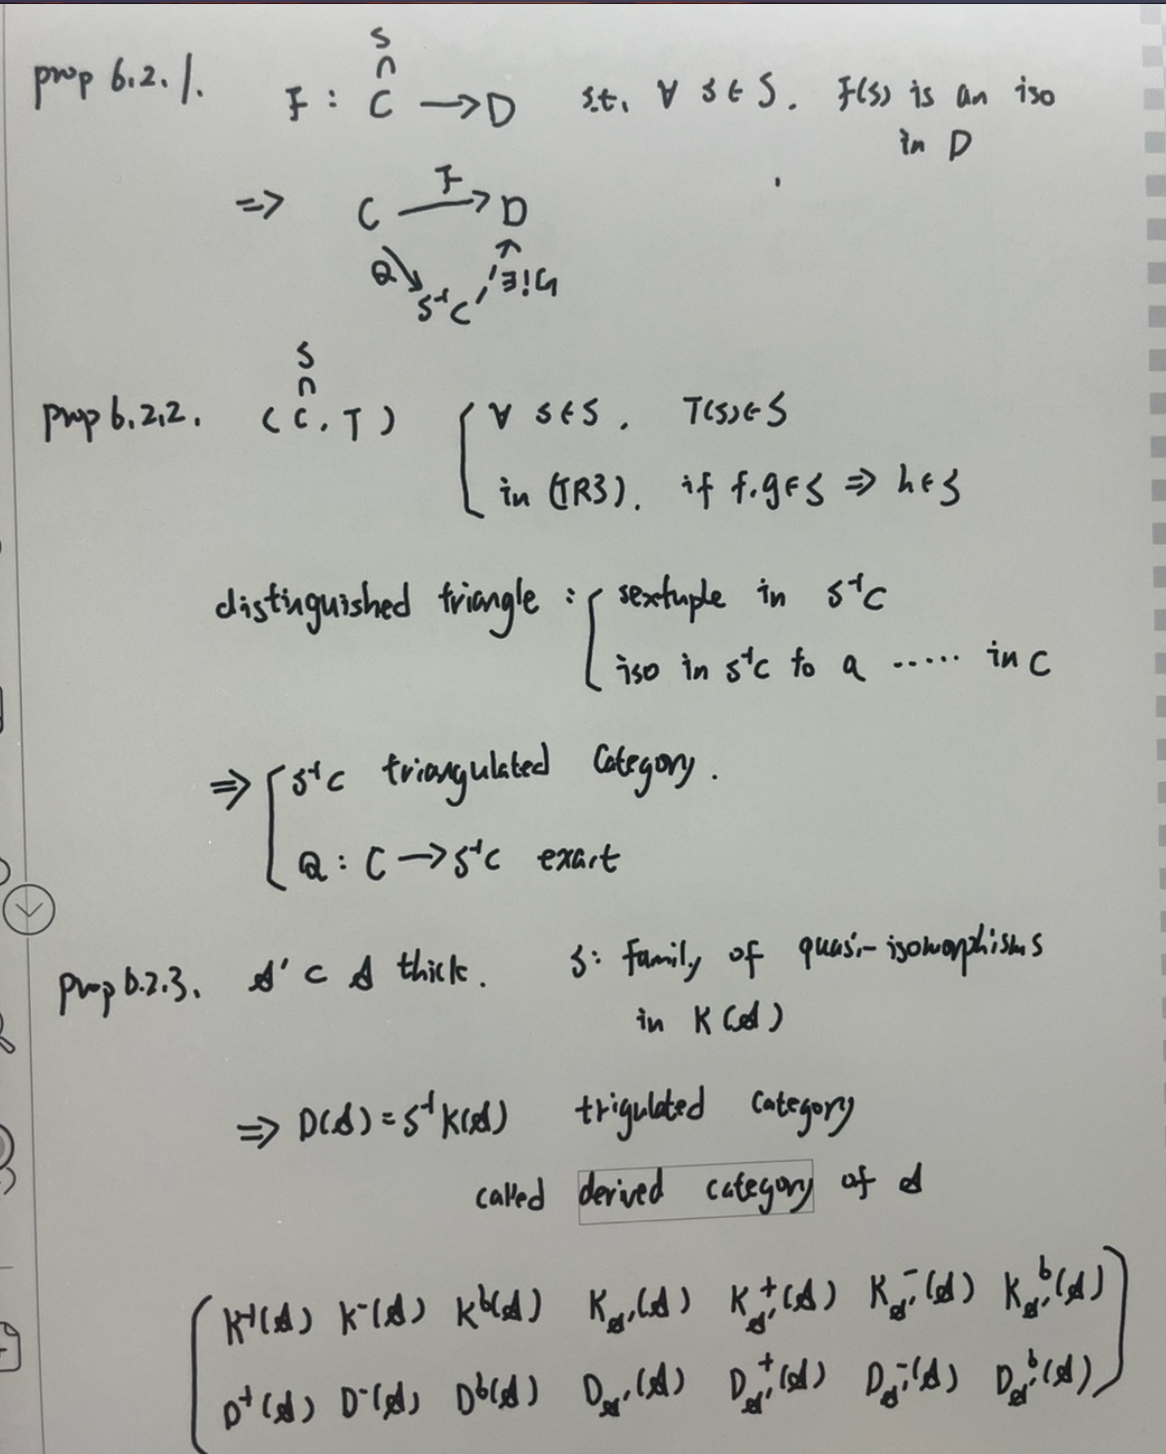 prop 6.2.1.
S
∩
F : C → D s.t. ∀ s ∈ S. F(s) is an iso
in D
⇒ C F→ D
Q ∃!G
S⁻¹C
S
∩
prop 6.2.2. (C, T) { ∀ s ∈ S, T(s) ∈ S
in (TR3). if f.g ∈ S ⇒ h ∈ S
distinguished triangle : { sextuple in S⁻¹C
iso in S⁻¹C to a ...... in C
⇒ { S⁻¹C triangulated category.
Q : C → S⁻¹C exact
prop 6.2.3. A' ⊂ A thick. S: family of quasi-isomorphisms
in K(A)
⇒ D(A) = S⁻¹K(A) trigulated category
called derived category of A
( K⁺(A) K⁻(A) Kᵇ(A) K_A'(A) K_A'⁺(A) K_A'⁻(A) K_A'ᵇ(A) )
D⁺(A) D⁻(A) Dᵇ(A) D_A'(A) D_A'⁺(A) D_A'⁻(A) D_A'ᵇ(A)